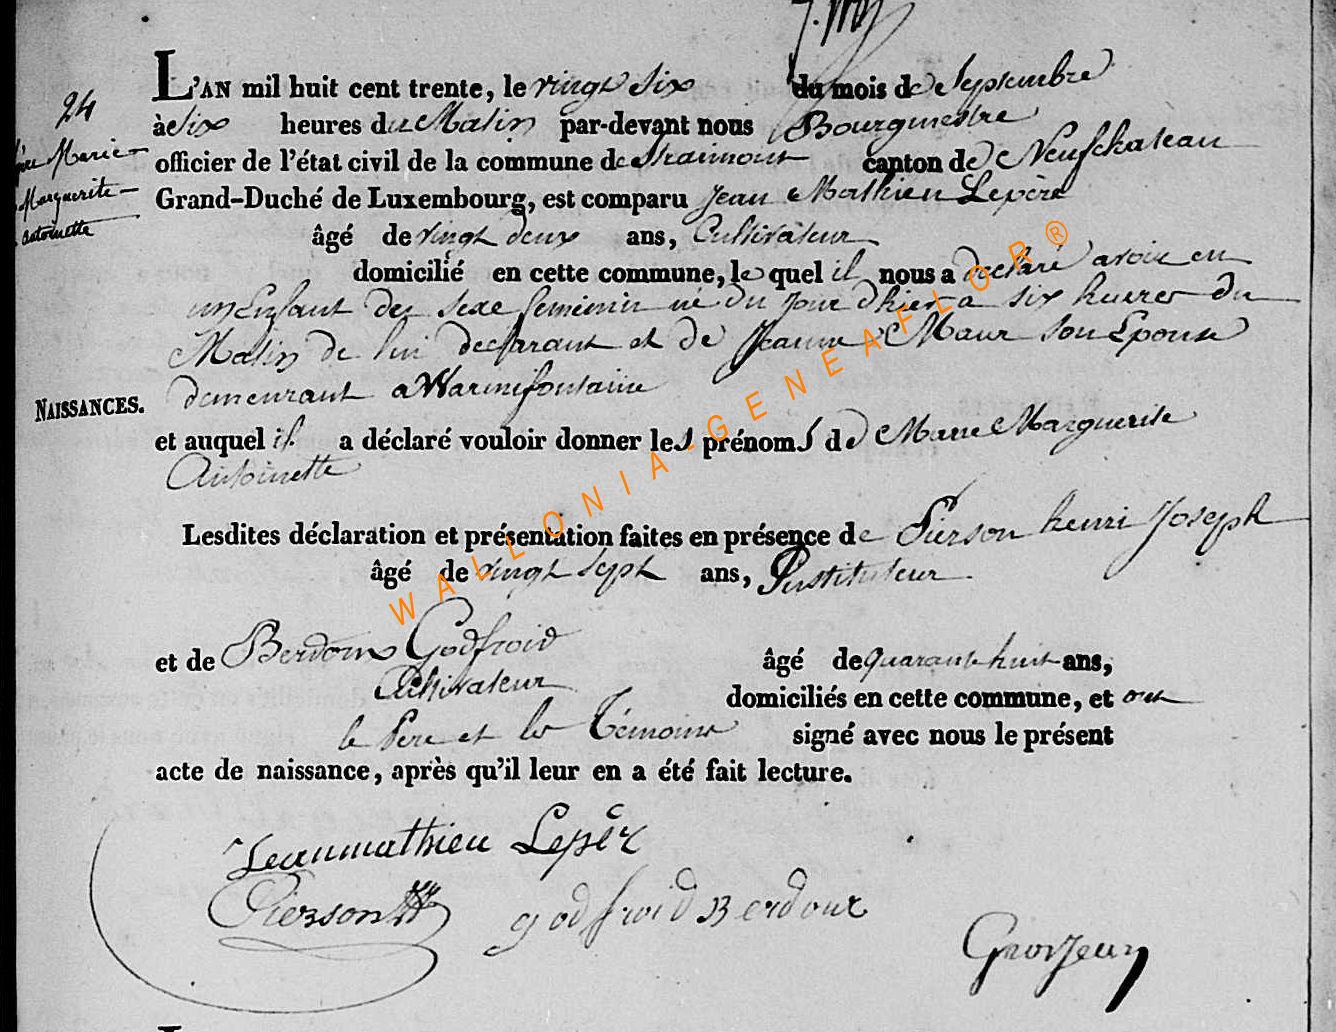 L'AN mil huit cent trente, le vingt six du mois de Septembre
à six heures du Matin par-devant nous Bourgmestre
officier de l'état civil de la commune de Straimont canton de Neufchateau
Grand-Duché de Luxembourg, est comparu Jean Mathieu Lepère
âgé de vingt deux ans, Cultivateur
domicilié en cette commune, le quel il nous a declaré avoir eu
un Enfant du sexe feminin né du jour d'hier a six heures du
Matin de lui declarant et de Jeanne Maur son Epouse
demeurant a Warmifontaine
et auquel il a déclaré vouloir donner les prénoms de Marie Marguerite
Antoinette
Lesdites déclaration et présentation faites en présence de Pierson henri Joseph
âgé de vingt sept ans, Instituteur
et de Berdoux Godfroid âgé de quarante huit ans,
Cultivateur
domiciliés en cette commune, et ont
le Pere et les Témoins signé avec nous le présent
acte de naissance, après qu'il leur en a été fait lecture.
Jeanmathieu Lepèr
Pierson
godfroid Berdoux
Grosjean
24
Marie
Marguerite
Antoinette
NAISSANCES.
WALLONIA-GENEAFLOR®